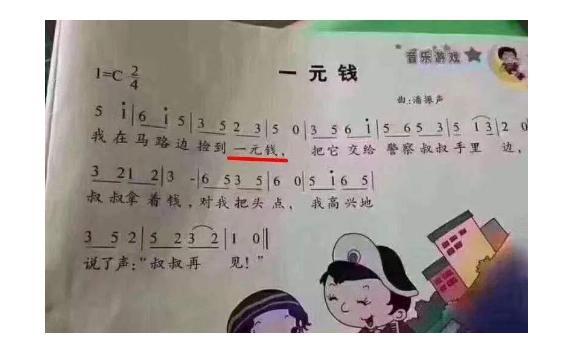 音乐游戏
一元钱
1=C 2/4
曲:潘振声
5 i|6 i 5|3 5 2 3|5 0|3 5 6 i|5 6 5 3|5 1 3|2 0
我在马路边捡到一元钱，把它交给警察叔叔手里边，
3 2 1 2|3 -|6 5 3 5|6 0|5 i 6 5|
叔叔拿着钱，对我把头点，我高兴地
3 5 2|5 2 3 2|1 0‖
说了声:“叔叔再见!”